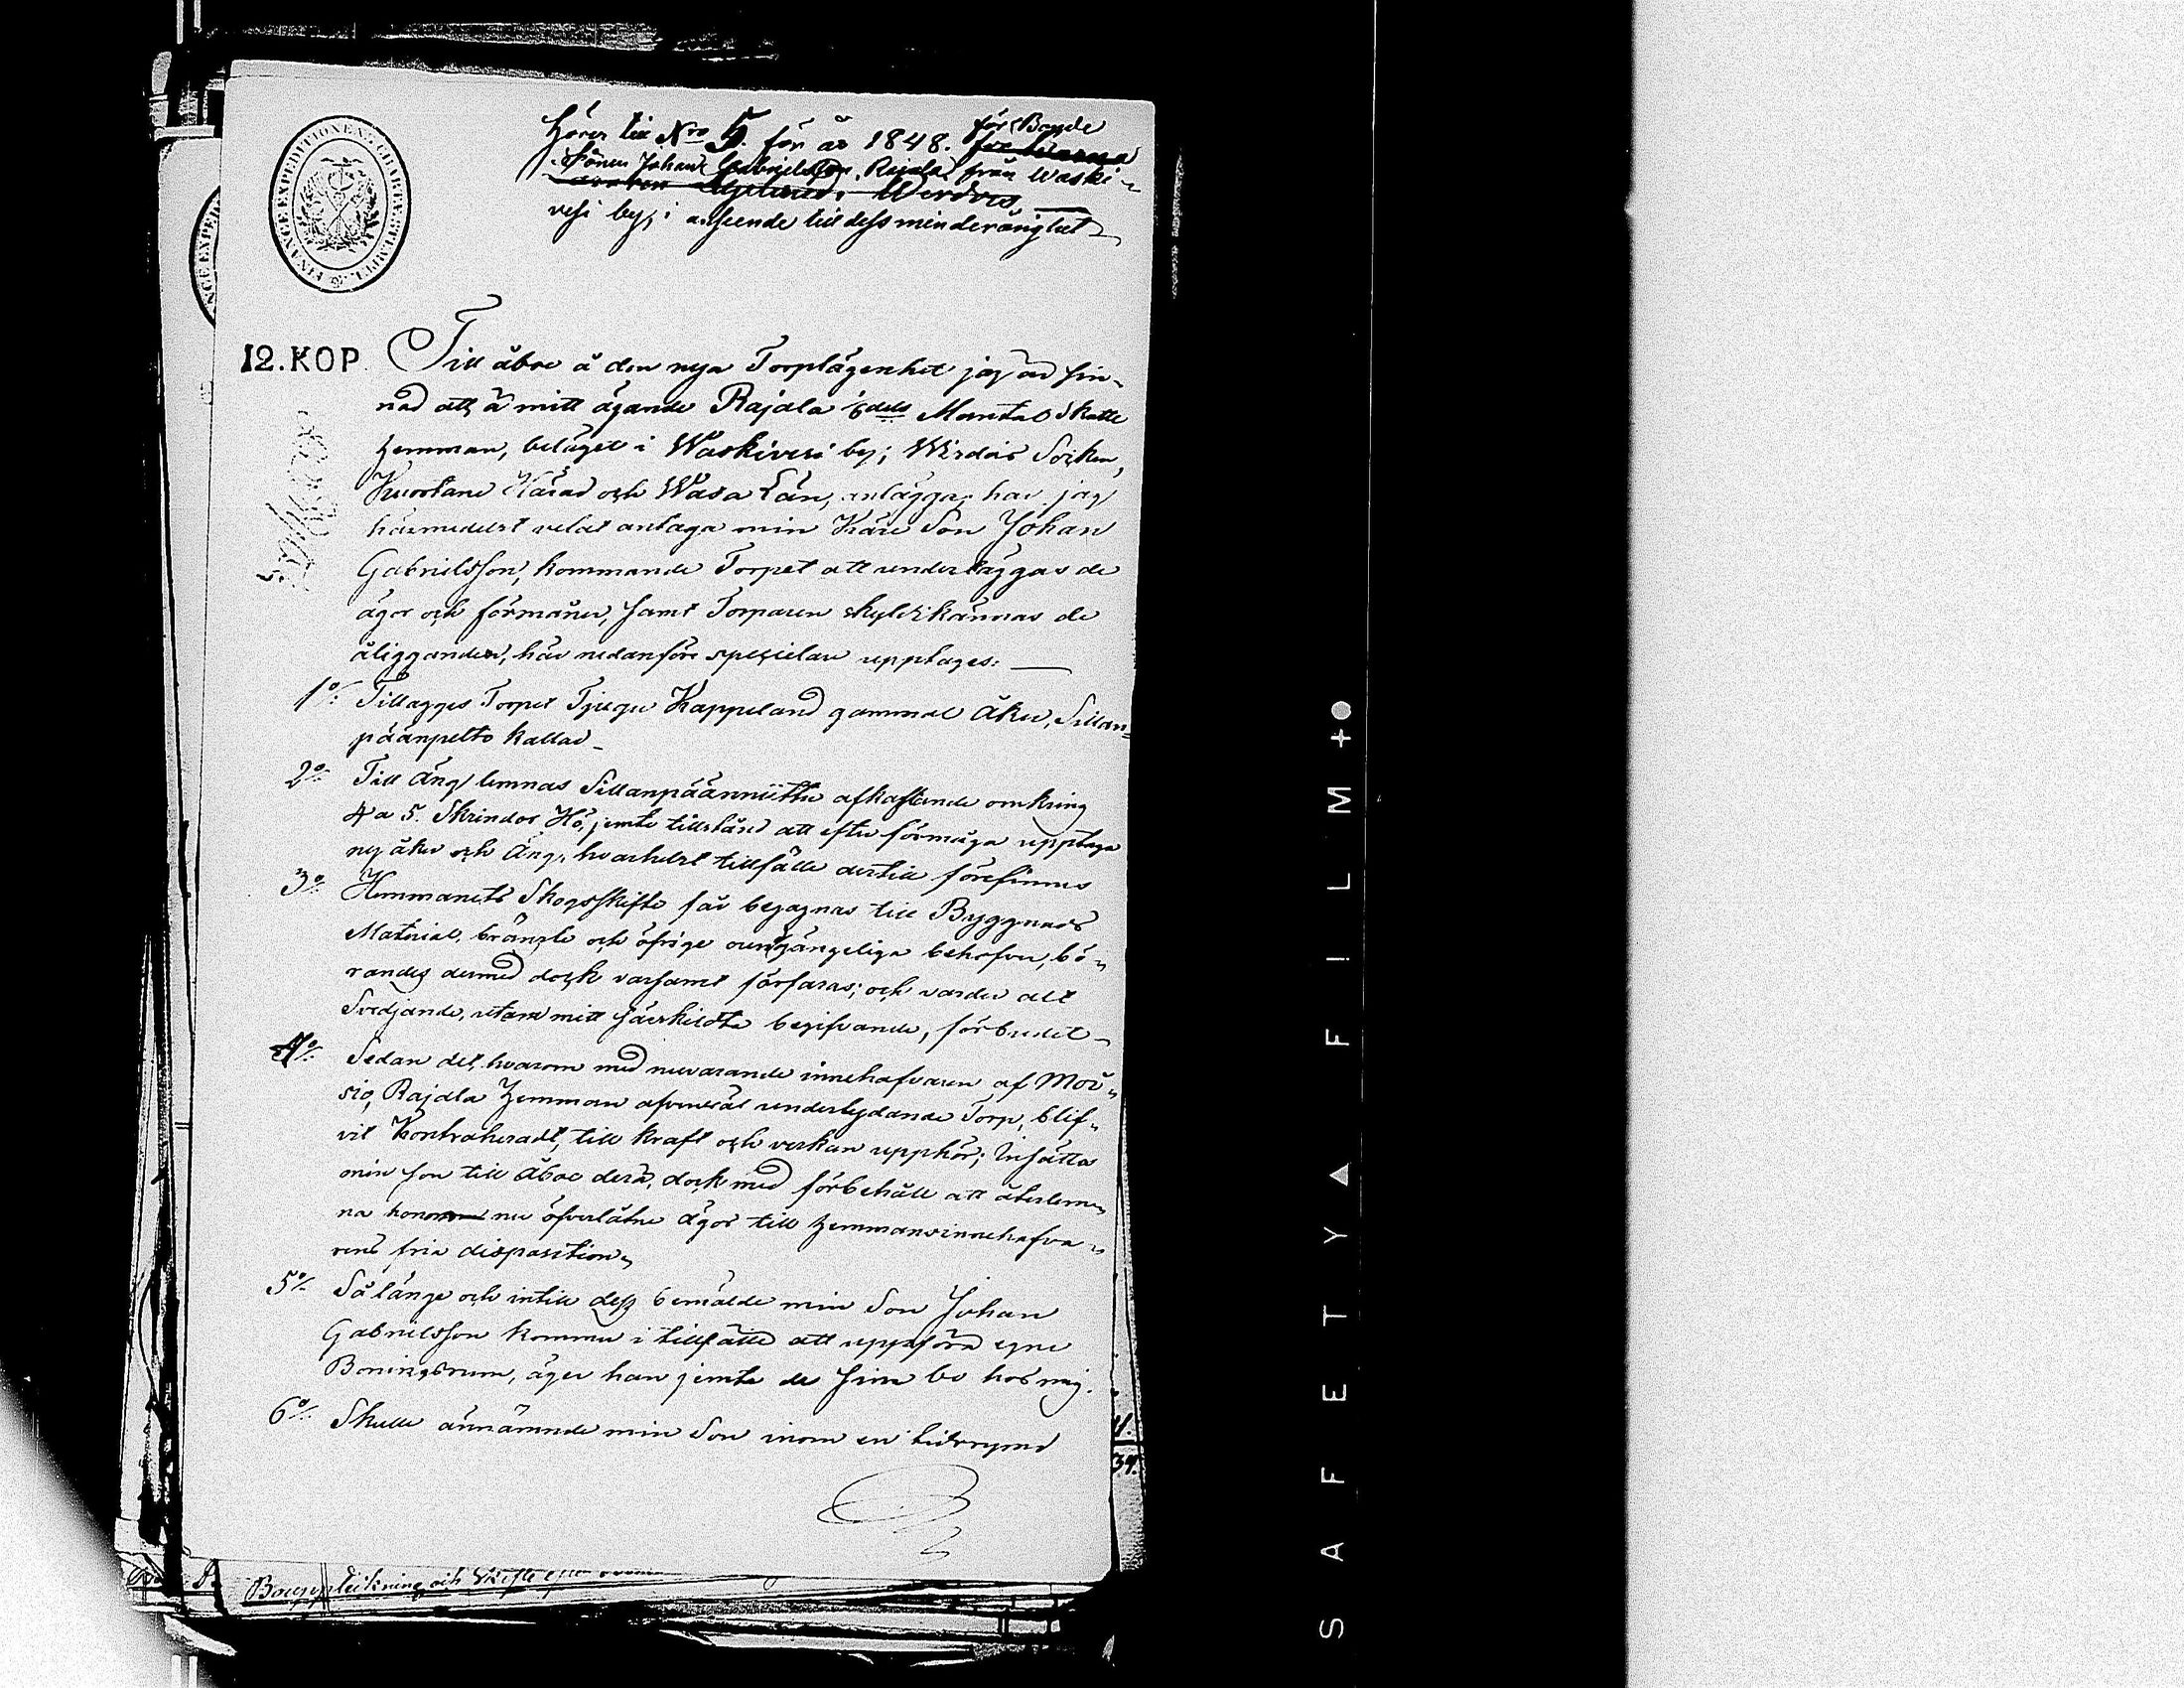 Hörer till Nro 5. för år 1848. för Bonde
Sonen Johan Gabrielsson Rajala från Waski-
vesi by, i anseende till dess minderårighet
FINANCE EXPEDITIONEN CHARTÆ STÆMPEL
12. KOP.
Till åboe å den nya Torplägenhet jag är sin-
nad att å mitt ägande Rajala 1/6dels Mantal Skatte
hemman, beläget i Waskivesi by, Wirdois Socken,
Kuortane Härad och Wasa Län, anlägga, har jag
härmedelst velat antaga min Käre Son Johan
Gabrielsson, kommande Torpet att underläggas de
ägor och förmåner, samt Torparen skyldkännas de
åligganden, här nedanföre specielare upptages:
1o/: Tillägges Torpet Tjugu Kappeland gammal Åker, Sillan-
päänpelto kallad
2o/: Till Äng lemnas Sillanpäänniittu afkastande omkring
4 a 5. Skrindor Hö, jemte tillstånd att efter förmåga upptaga
ny åker och Äng, hvarhelst tillfälle dertill förefinnes
3o/: Hemmanets Skogsskifte får begagnas till Byggnads
Material, bränsle och öfrige oundgängeliga behofver, bö-
randes dermed dock varsamt förfaras; och varder allt
Svedjande, utom mitt särskildta begifvande, förbudet
4o/: Sedan det, hvarom med nuvarande innehafvaren af
Rajala Hemman underlydande Torp, blif-
vit Kontraheradt, till kraft och verkan upphör; Insätta
min son till Åboe derå, dock med förbehåll att återlem-
na honom nu öfverlåtne ägor till hemmansinnehafva-
rens fria disposition
5o/: Så länge och intill dess bemälde min Son Johan
Gabrielsson kommer i tillfälle att uppföra egne
Boningsrum, äger han jemte de sina bo hos mig.
6o/: Skulle annämnde min Son inom en tidrymd
Bouppteckning och Skifte efter
34.
SAFETY FILM